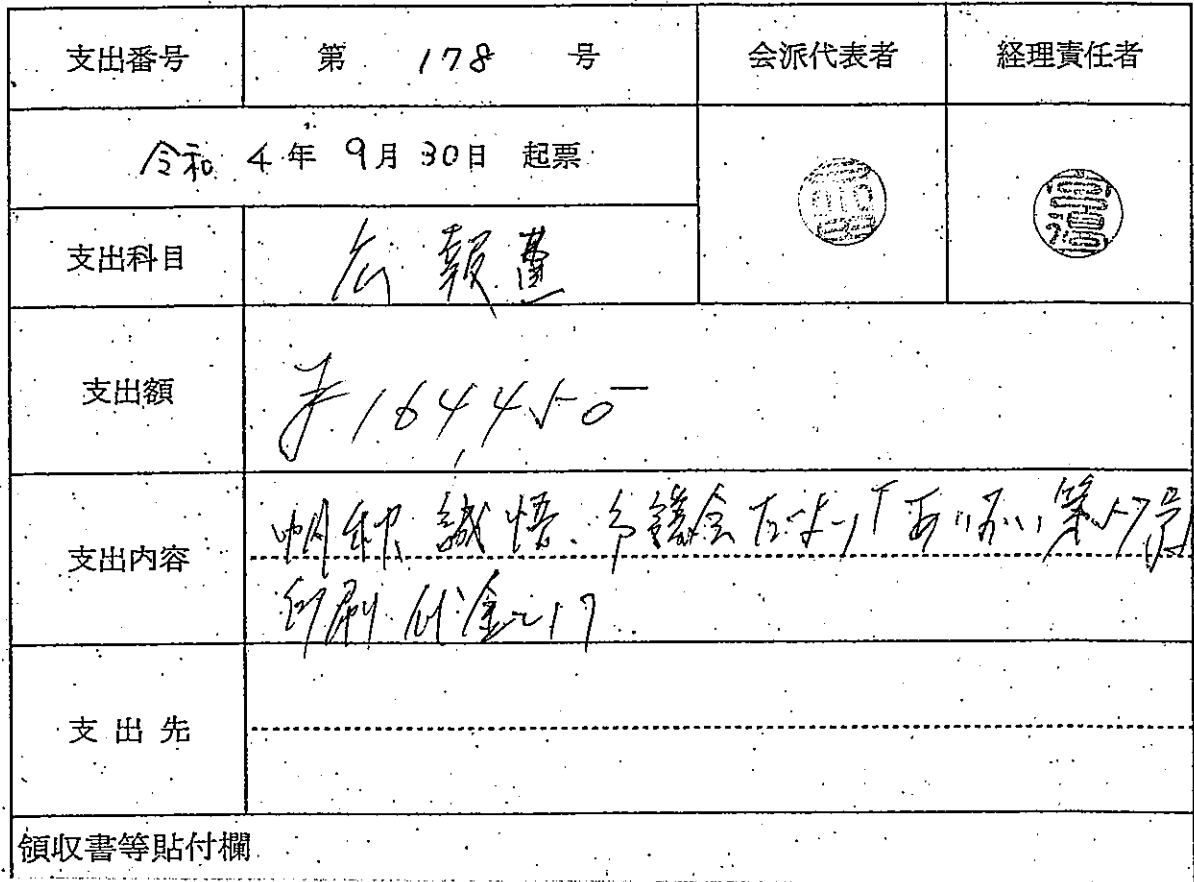 支出番号 第 178 号 会派代表者 経理責任者
令和 4年 9月 30日 起票
支出科目 広報費
支出額 ¥164450
支出内容 誠悟 市議会だより 第57号
印刷代金として
支出先
領収書等貼付欄